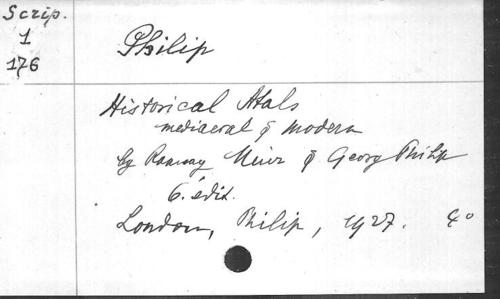 Scrip.
1
176
Philip
Historical Atals
mediaeval & modern
by Ramsay Muir & George Philip
6. edit.
London, Philip, 1927. 4°